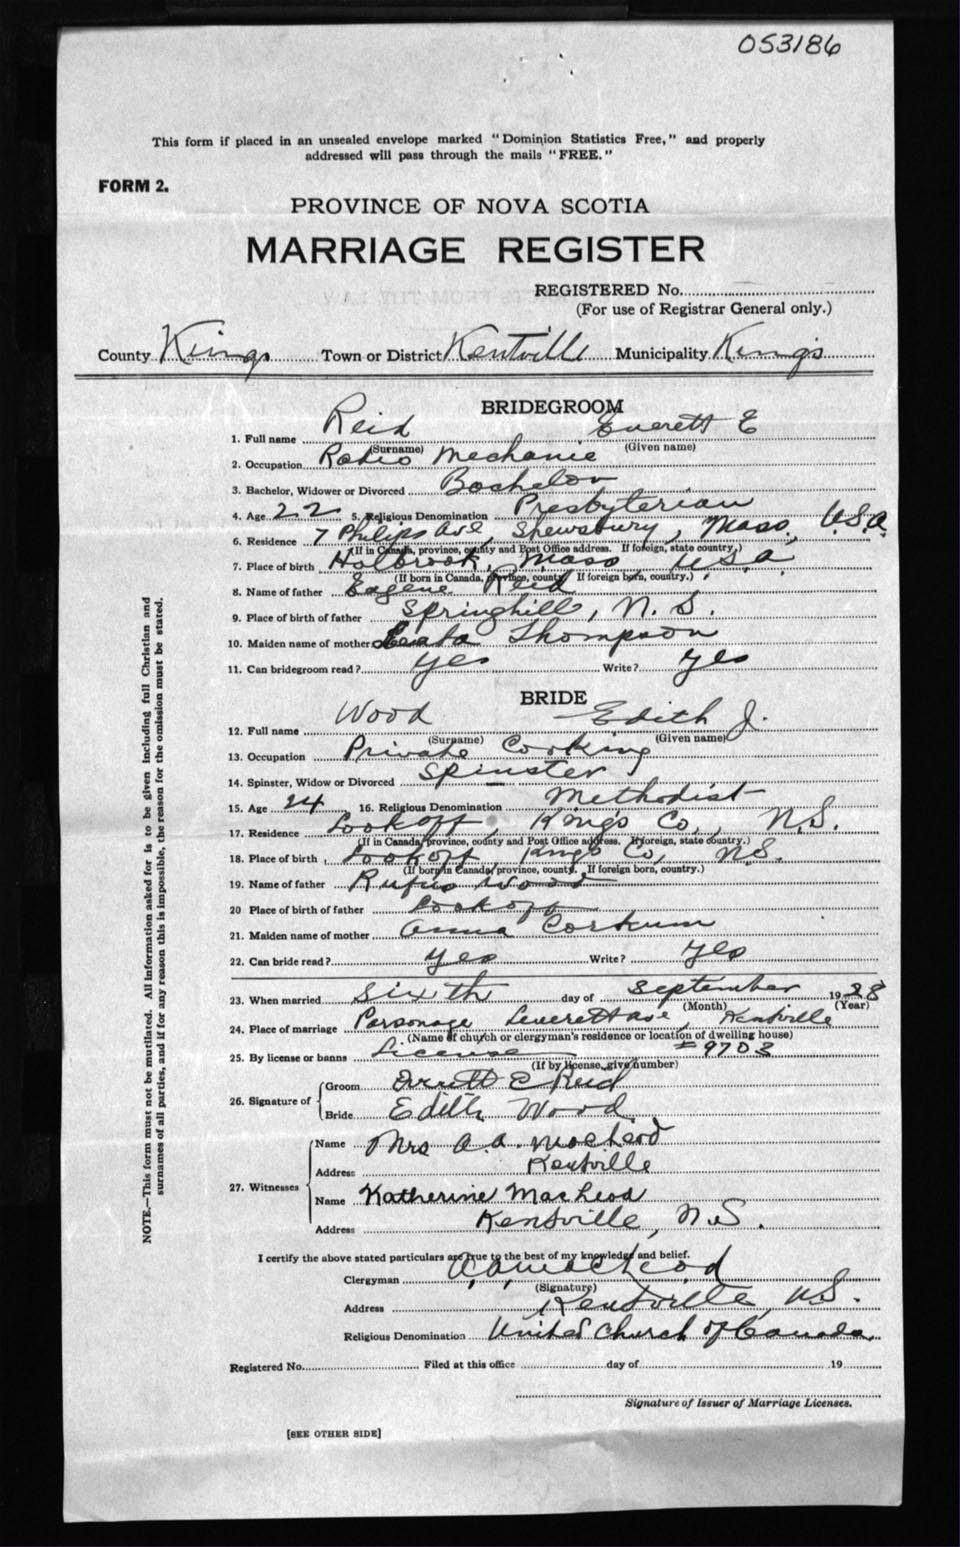 053186
This form if placed in an unsealed envelope marked "Dominion Statistics Free," and properly
addressed will pass through the mails "FREE."
FORM 2.
PROVINCE OF NOVA SCOTIA
MARRIAGE REGISTER
REGISTERED No.
(For use of Registrar General only.)
County Kings Town or District Kentville Municipality Kings
BRIDEGROOM
1. Full name Reid Everett E
(Surname) (Given name)
2. Occupation Radio Mechanic
3. Bachelor, Widower or Divorced Bachelor
4. Age 22 5. Religious Denomination Presbyterian
6. Residence 7 Philips Ave, Shewsbury, Mass., U.S.A
(If in Canada, province, county and Post Office address. If foreign, state country.)
7. Place of birth Holbrook, Mass U.S.A.
(If born in Canada, province, county. If foreign born, country.)
8. Name of father Eugene Reid
9. Place of birth of father Springhill, N.S.
10. Maiden name of mother Thompson
11. Can bridegroom read? Yes Write? Yes
BRIDE
12. Full name Wood Edith J.
(Surname) (Given name)
13. Occupation Private Cooking
14. Spinster, Widow or Divorced Spinster
15. Age 24 16. Religious Denomination Methodist
17. Residence Lookoff, Kings Co., N.S.
(If in Canada, province, county and Post Office address. If foreign, state country.)
18. Place of birth Lookoff, Kings Co, N.S.
(If born in Canada, province, county. If foreign born, country.)
19. Name of father Rufus Wood
20 Place of birth of father Lookoff
21. Maiden name of mother Anna Corkum
22. Can bride read? Yes Write? Yes
23. When married Sixth day of September 19
(Month) (Year)
24. Place of marriage Parsonage Leverett ave, Kentville
(Name of church or clergyman's residence or location of dwelling house)
25. By license or banns License # 9703
(If by license, give number)
26. Signature of
Groom E Reid
Bride Edith Wood
27. Witnesses
Name Mrs A. A. MacLeod
Address Kentville
Name Katherine MacLeod
Address Kentville, N.S.
I certify the above stated particulars are true to the best of my knowledge and belief.
Clergyman A. A. MacLeod
(Signature)
Address Kentville, N.S.
Religious Denomination United Church of Canada
Registered No. Filed at this office day of 19
Signature of Issuer of Marriage Licenses.
[SEE OTHER SIDE]
NOTE.—This form must not be mutilated. All information asked for is to be given including full Christian and
surnames of all parties, and if for any reason this is impossible, the reason for the omission must be stated.